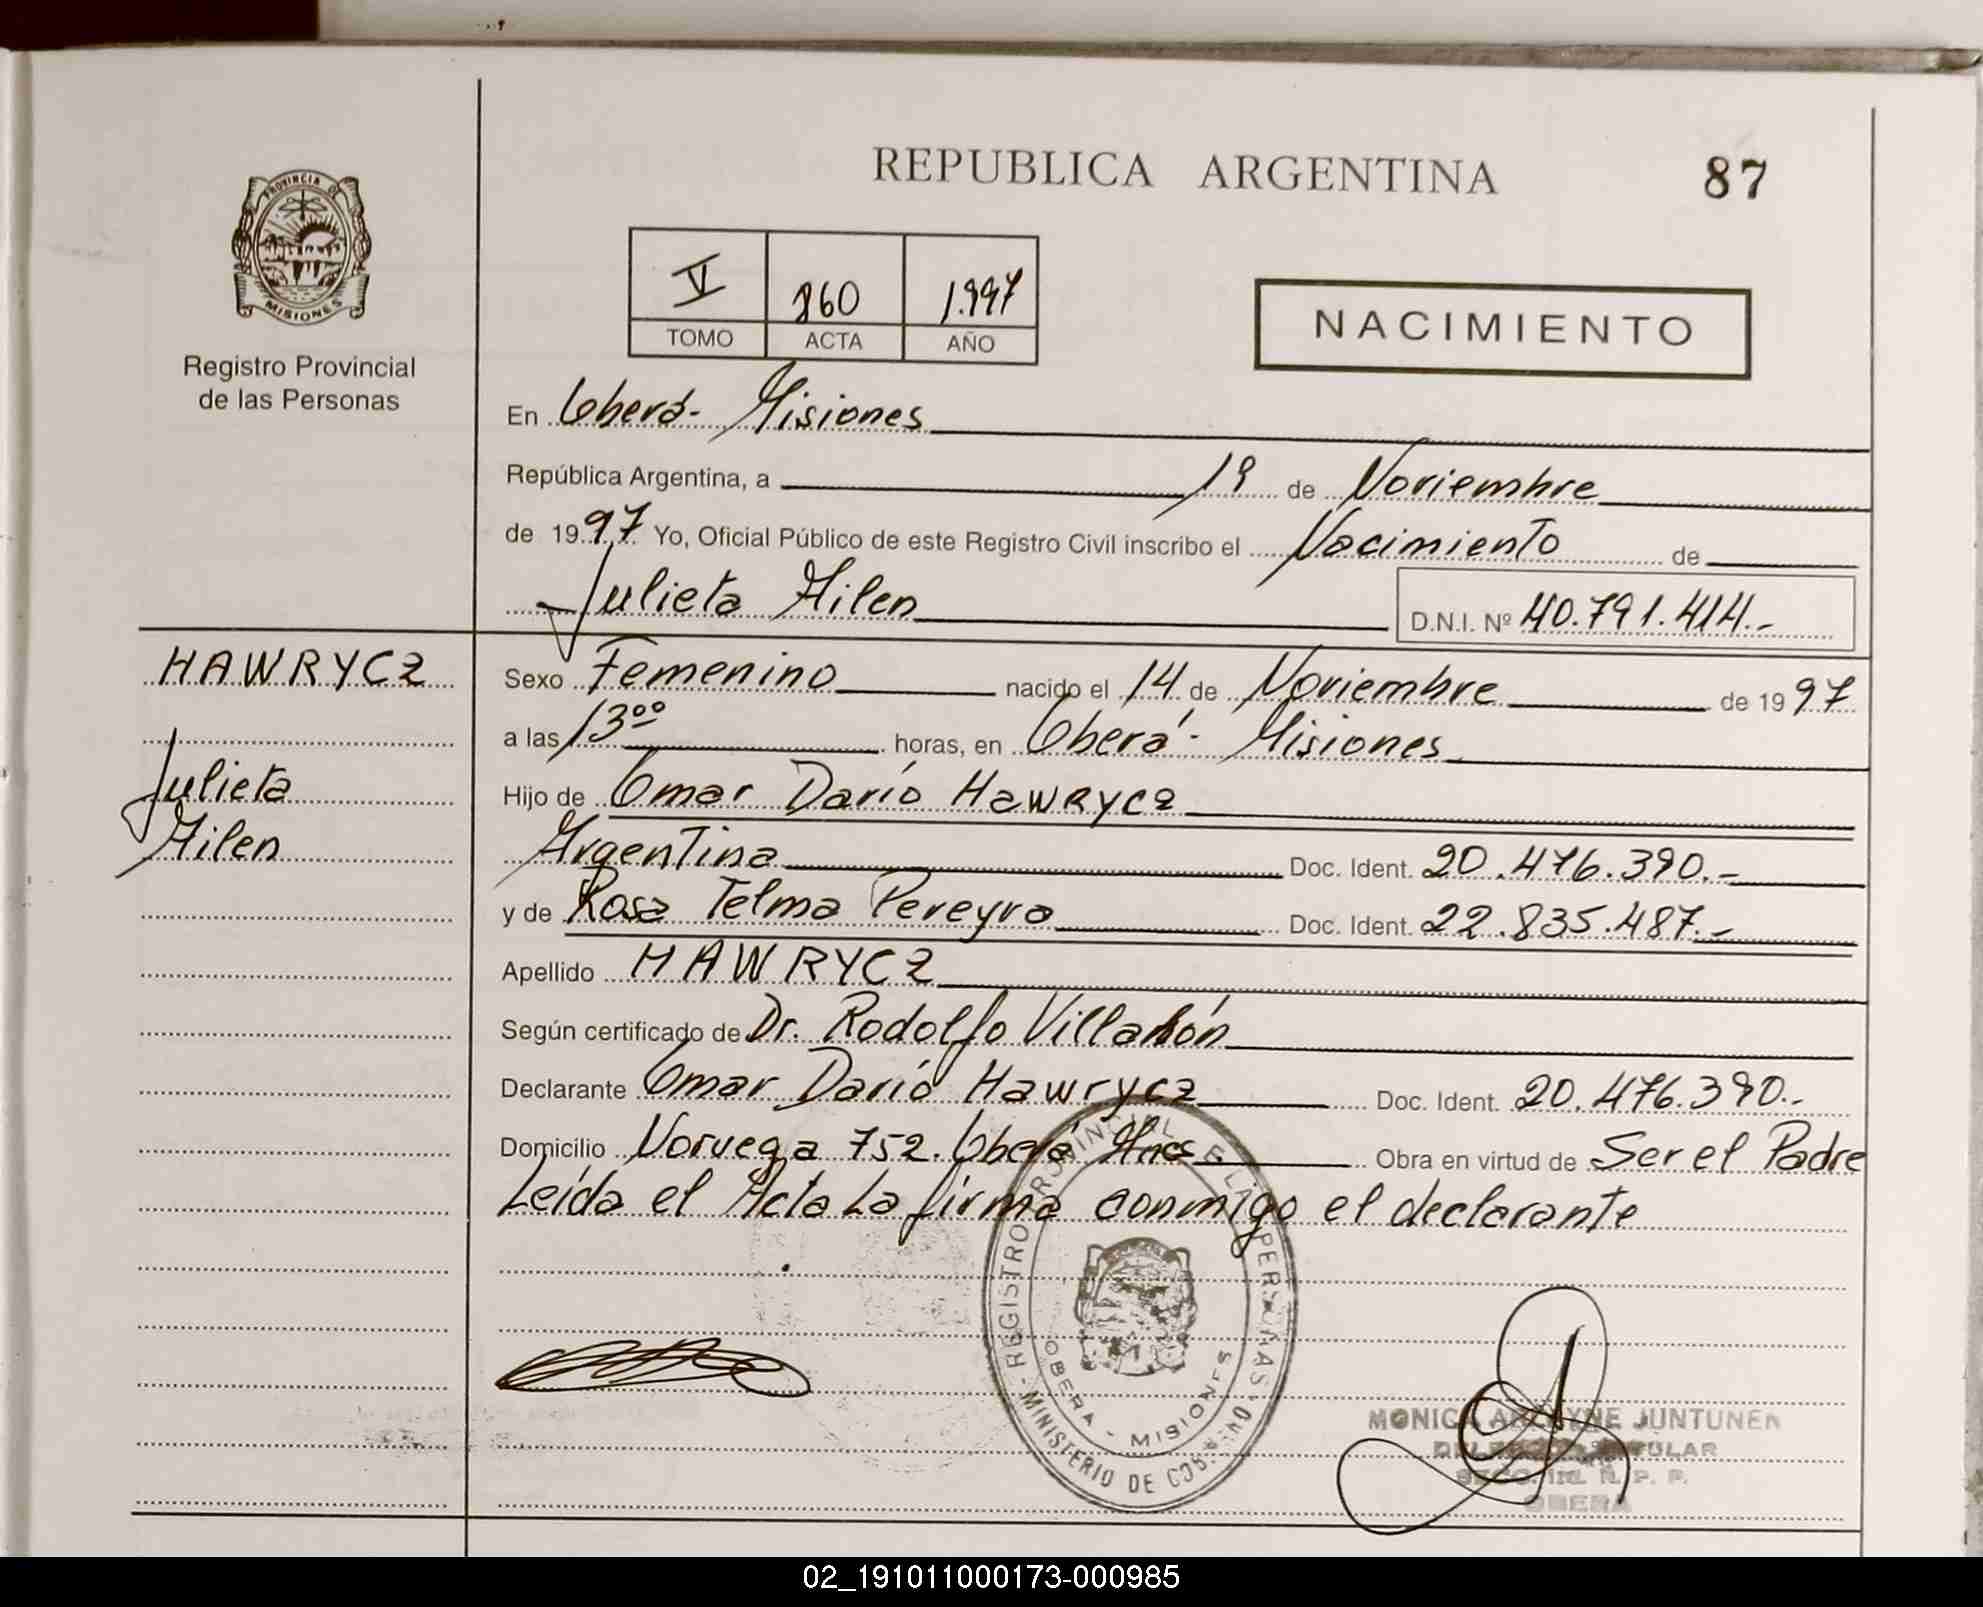 REPUBLICA ARGENTINA
87
PROVINCIA DE
MISIONES
Registro Provincial
de las Personas
V 860 1.997
TOMO ACTA AÑO
NACIMIENTO
En Oberá- Misiones
República Argentina, a 19 de Noviembre
de 1997 Yo, Oficial Público de este Registro Civil inscribo el Nacimiento de
Julieta Ailen D.N.I. Nº 40.791.414.-
HAWRYCZ
Julieta
Ailen
Sexo Femenino nacido el 14 de Noviembre de 1997
a las 13⁰⁰ horas, en Oberá- Misiones
Hijo de Omar Darío Hawrycz
Argentina Doc. Ident. 20.476.390.-
y de Rosa Telma Pereyra Doc. Ident. 22.835.487.-
Apellido HAWRYCZ
Según certificado de Dr. Rodolfo
Declarante Omar Darío Hawrycz Doc. Ident. 20.476.390.-
Domicilio Noruega 752. Oberá Mnes. Obra en virtud de Ser el Padre
Leída el Acta La firma conmigo el declarante
REGISTRO PROVINCIAL DE LAS PERSONAS
OBERA - MISIONES
MINISTERIO DE GOBIERNO
MONICA JUNTUNEN
OBERA
02_191011000173-000985